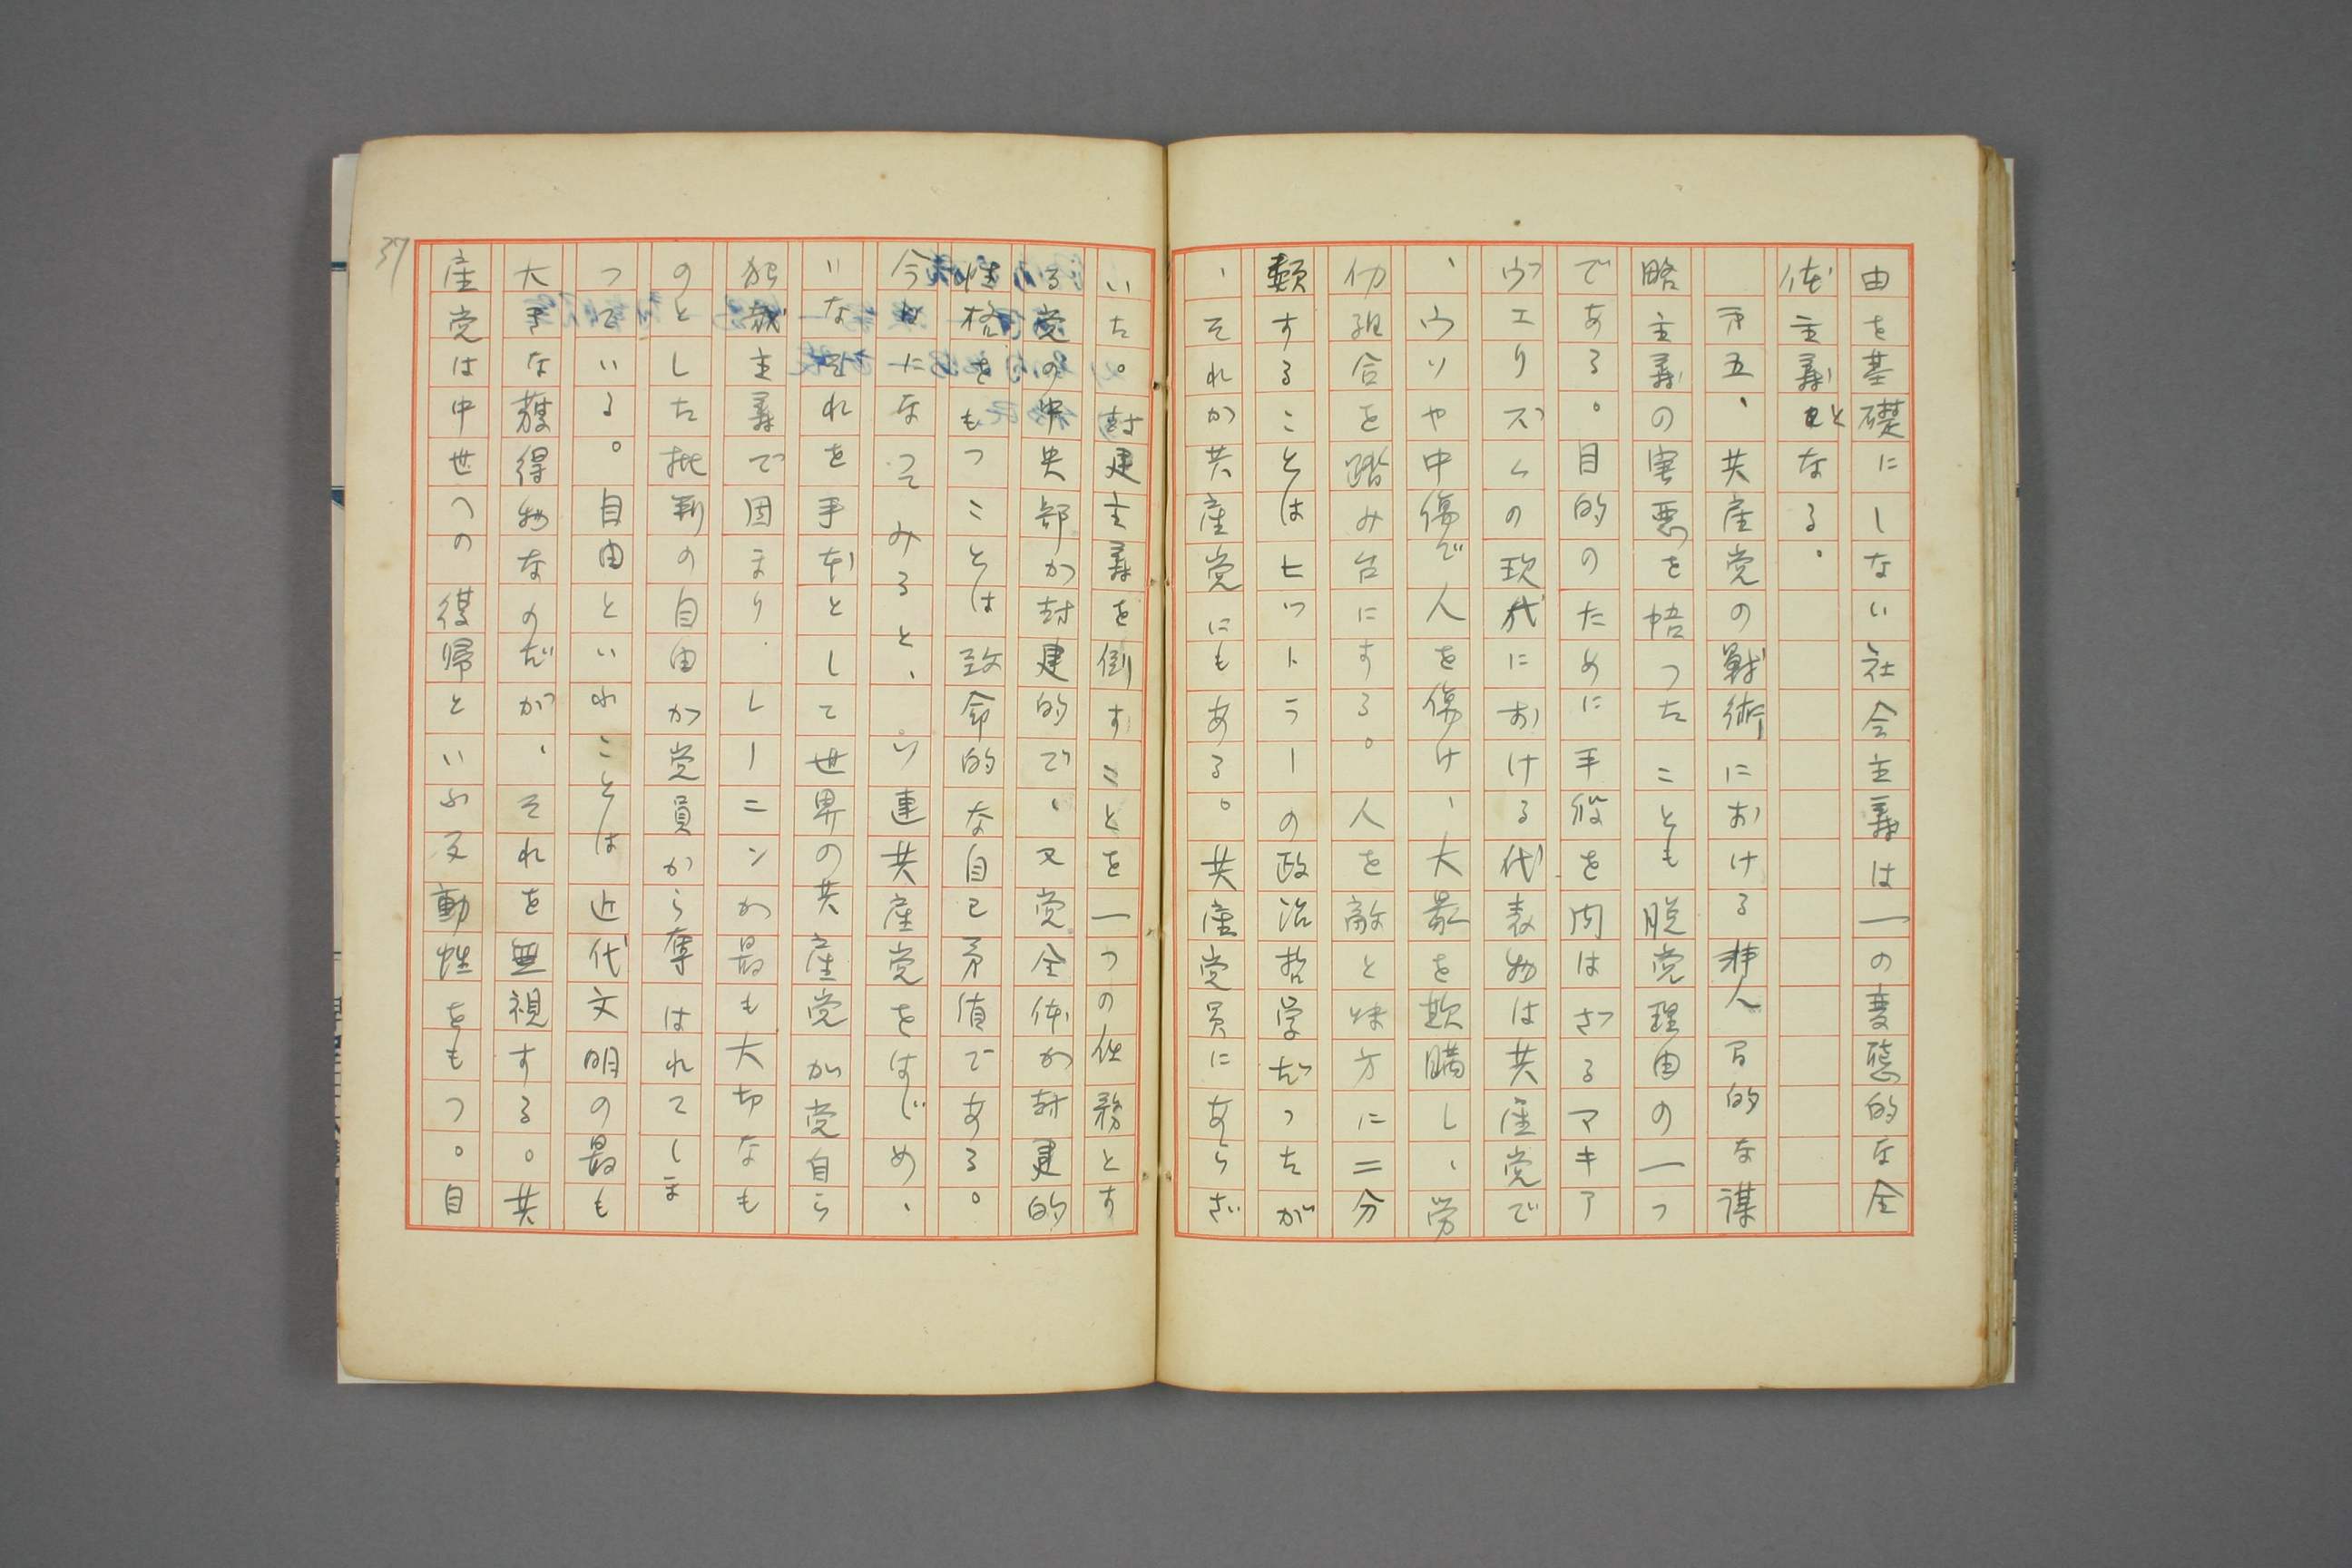 由を基礎にしない社会主義は一の変態的な全
体主義となる。
才五、共産党の戦術における非人間的な謀
略主義の害悪を悟ったことも脱党理由の一つ
である。目的のために手段を問はざるマキア
ヴエリズムの現代における代表物は共産党で
、ウソや中傷で人を傷け、大衆を欺瞞し、労
仂組合を踏み台にする。人を敵と味方に二分
類することはヒットラーの政治哲学だったが
、それが共産党にもある。共産党員にあらざ
いた。封建主義を倒すことを一つの任務とす
る党の中央部が封建的で、又党全体が封建的
性格をもつことは致命的な自己矛盾である。
今日になってみると、ソ連共産党をはじめ、
いなそれを手本として世界の共産党が党自ら
独裁主義で固まり、レーニンが最も大切なも
のとした批判の自由が党員から奪はれてしま
っている。自由といふことは近代文明の最も
大事な獲得物なのだが、それを無視する。共
産党は中世への復帰といふ反動性をもつ。自
37